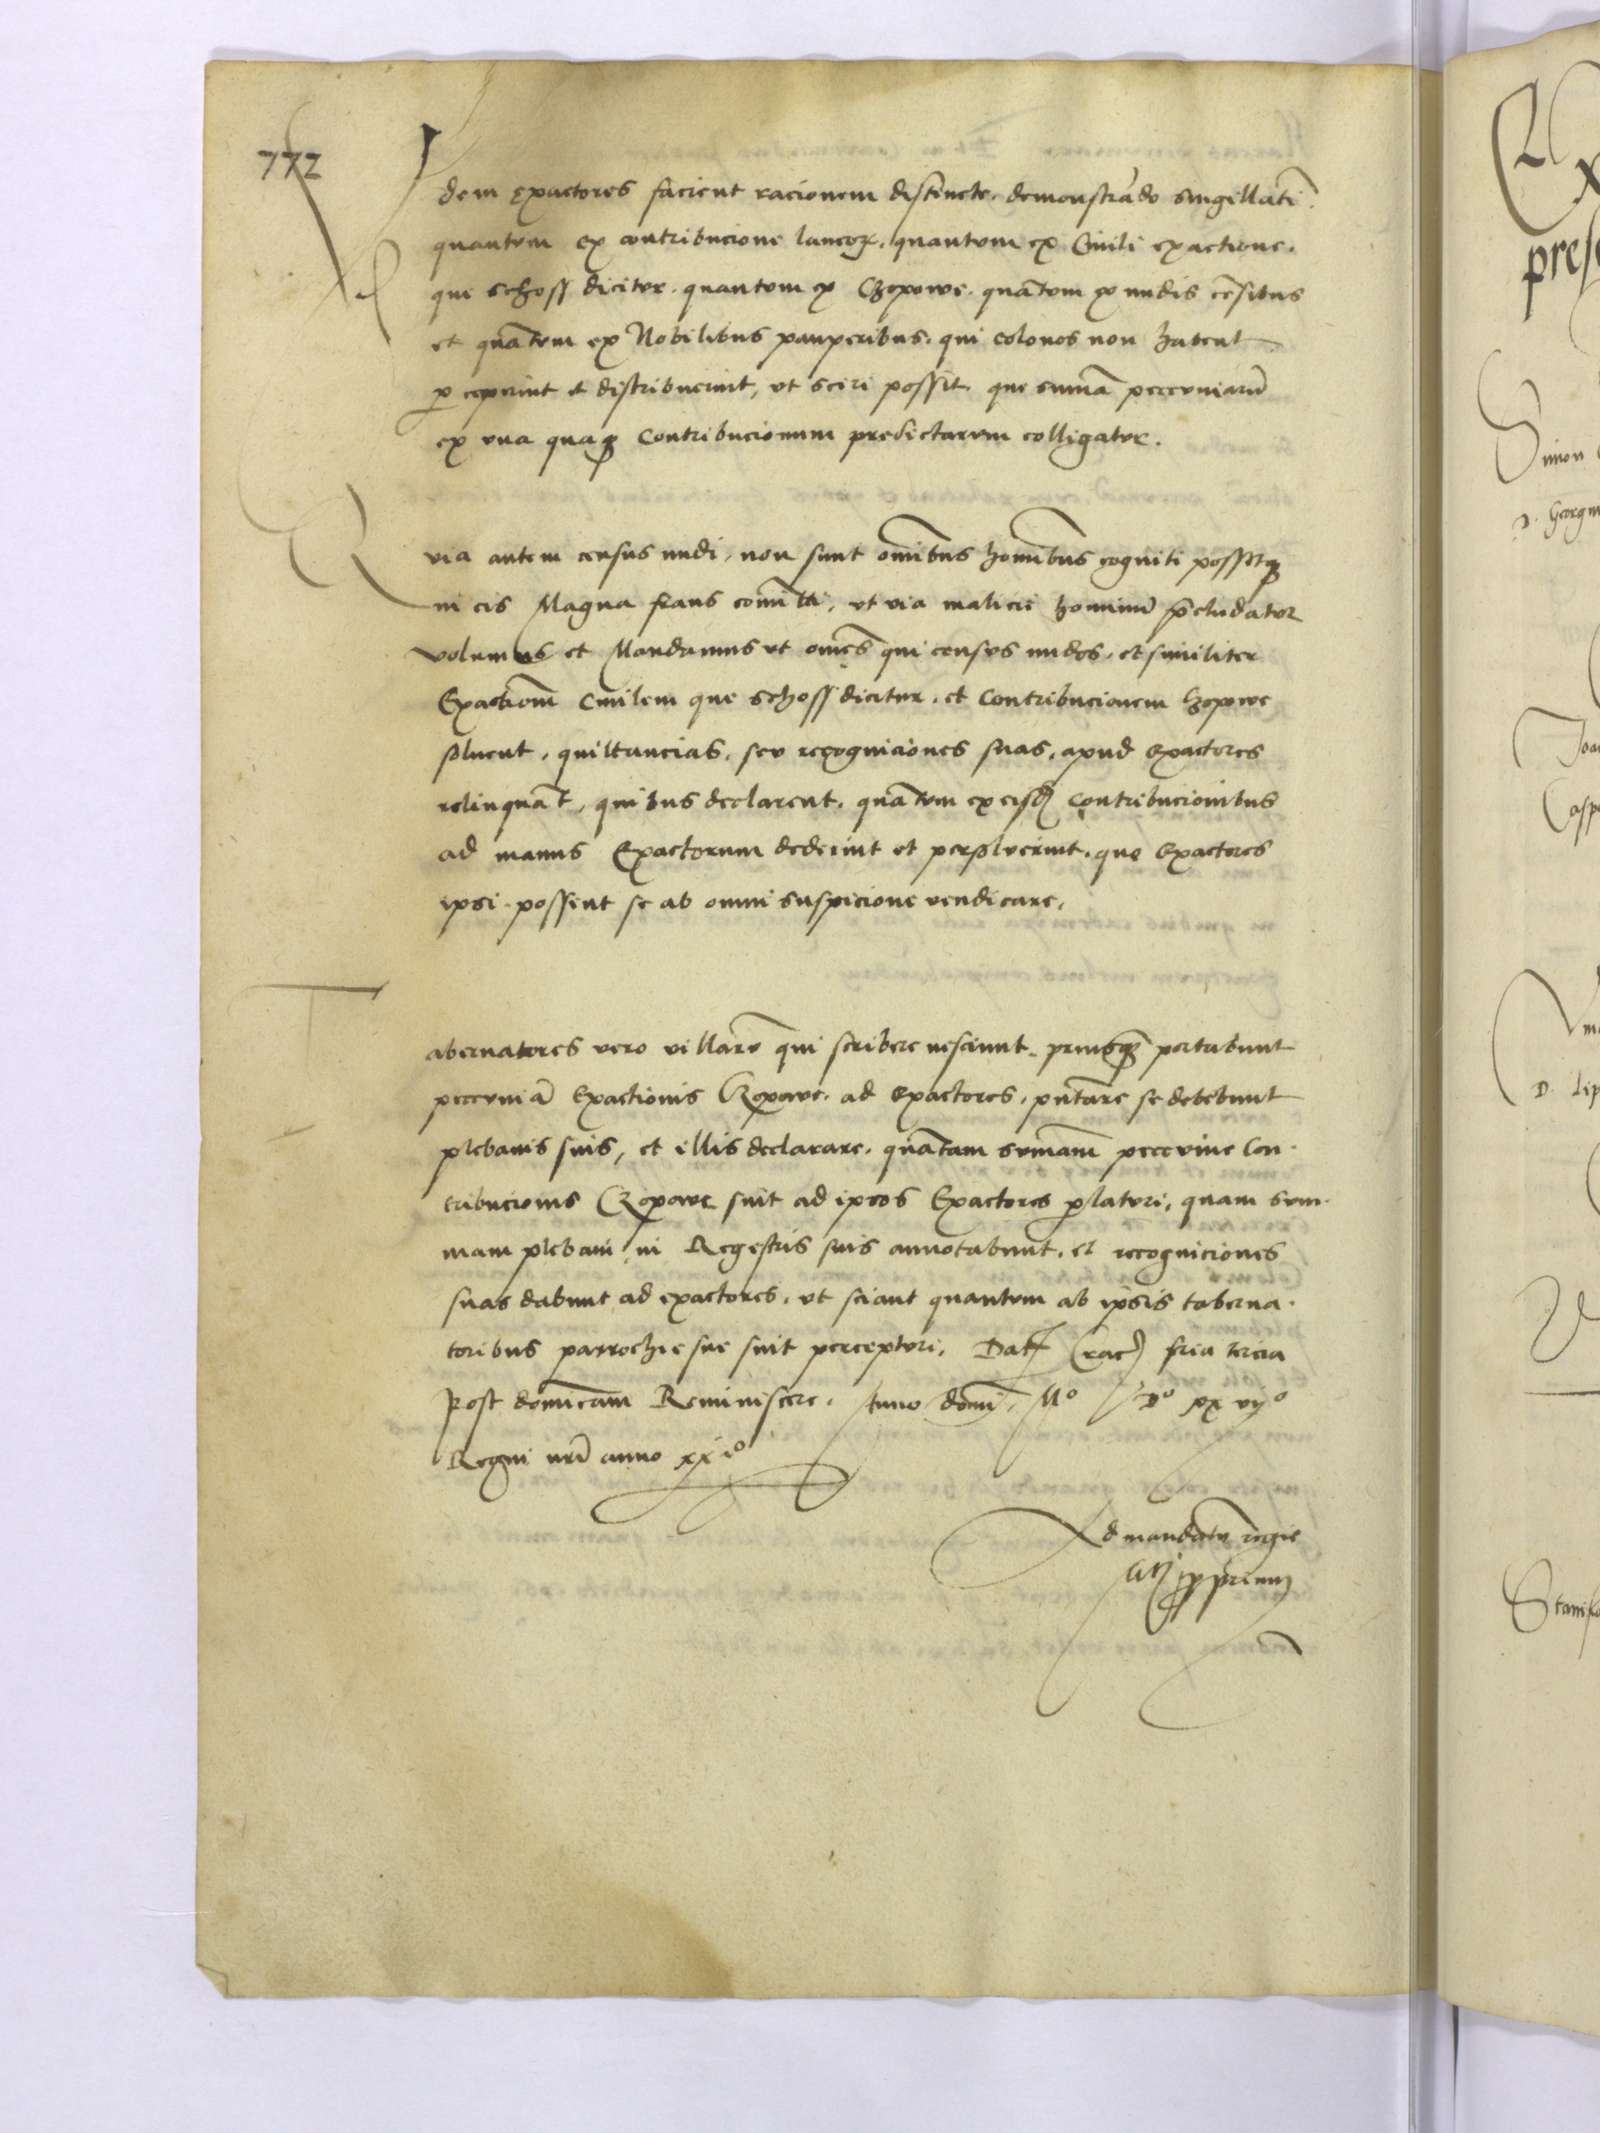 772
Idem exactores facient racionem distincte. demonstrādo singillatī.
quantum ex contribucione laneoꝝ. quantum ex Civili exactione.
que schoss dicitur. quantum ex Czopowe. quātum ex nudis cēsibus
et quātum ex Nobilibus pauperibus. qui colonos non habent
ꝑceperint et distribuerint, ut sciri possit. que sumā peccuniarū
ex una quaqꝫ Contribucionum predictarum colligatur.
Quia autem census nudi, non sunt omībus homībus cogniti possetqꝫ
in eis Magna fraus comitti, ut via malicie hominū p̄cludatur
volumus et Mandamus ut omēs qui census nudos, et similiter
Exactionē Civilem que schoss dicitur, et Contribucionem Czopowe
solvent, quittancias, seu recogniciones suas, apud exactores
relinquāt, quibus declarent, quātum ex eisdꝫ Contribucionibus
ad manus Exactorum dederint et persolverint. quo Exactores
ipsi possent se ab omni suspicione vendicare.
Tabernatores vero villarū qui scribere nesciunt. priusqꝫ portabunt
peccuniā Exactionis Czopowe. ad Exactores, pn̄tare se debebunt
plebanis suis, et illis declarare. quātam sumam̄ peccunie Con-
tribucionis Czopowe sint ad ipsos Exactores ꝑlaturi, quam sum-
mam plebani in Regestris suis annotabunt. et recogniciones
suas dabunt ad exactores. ut sciant quantum ab ipsis taberna-
toribus parrochie sue sint percepturi. Dat Crac fria tercia
Post domīcam Reminiscere. Anno domī. Mº Dº xx vijº
Regni nrī anno xxiº
Ad mandatū regie
prium